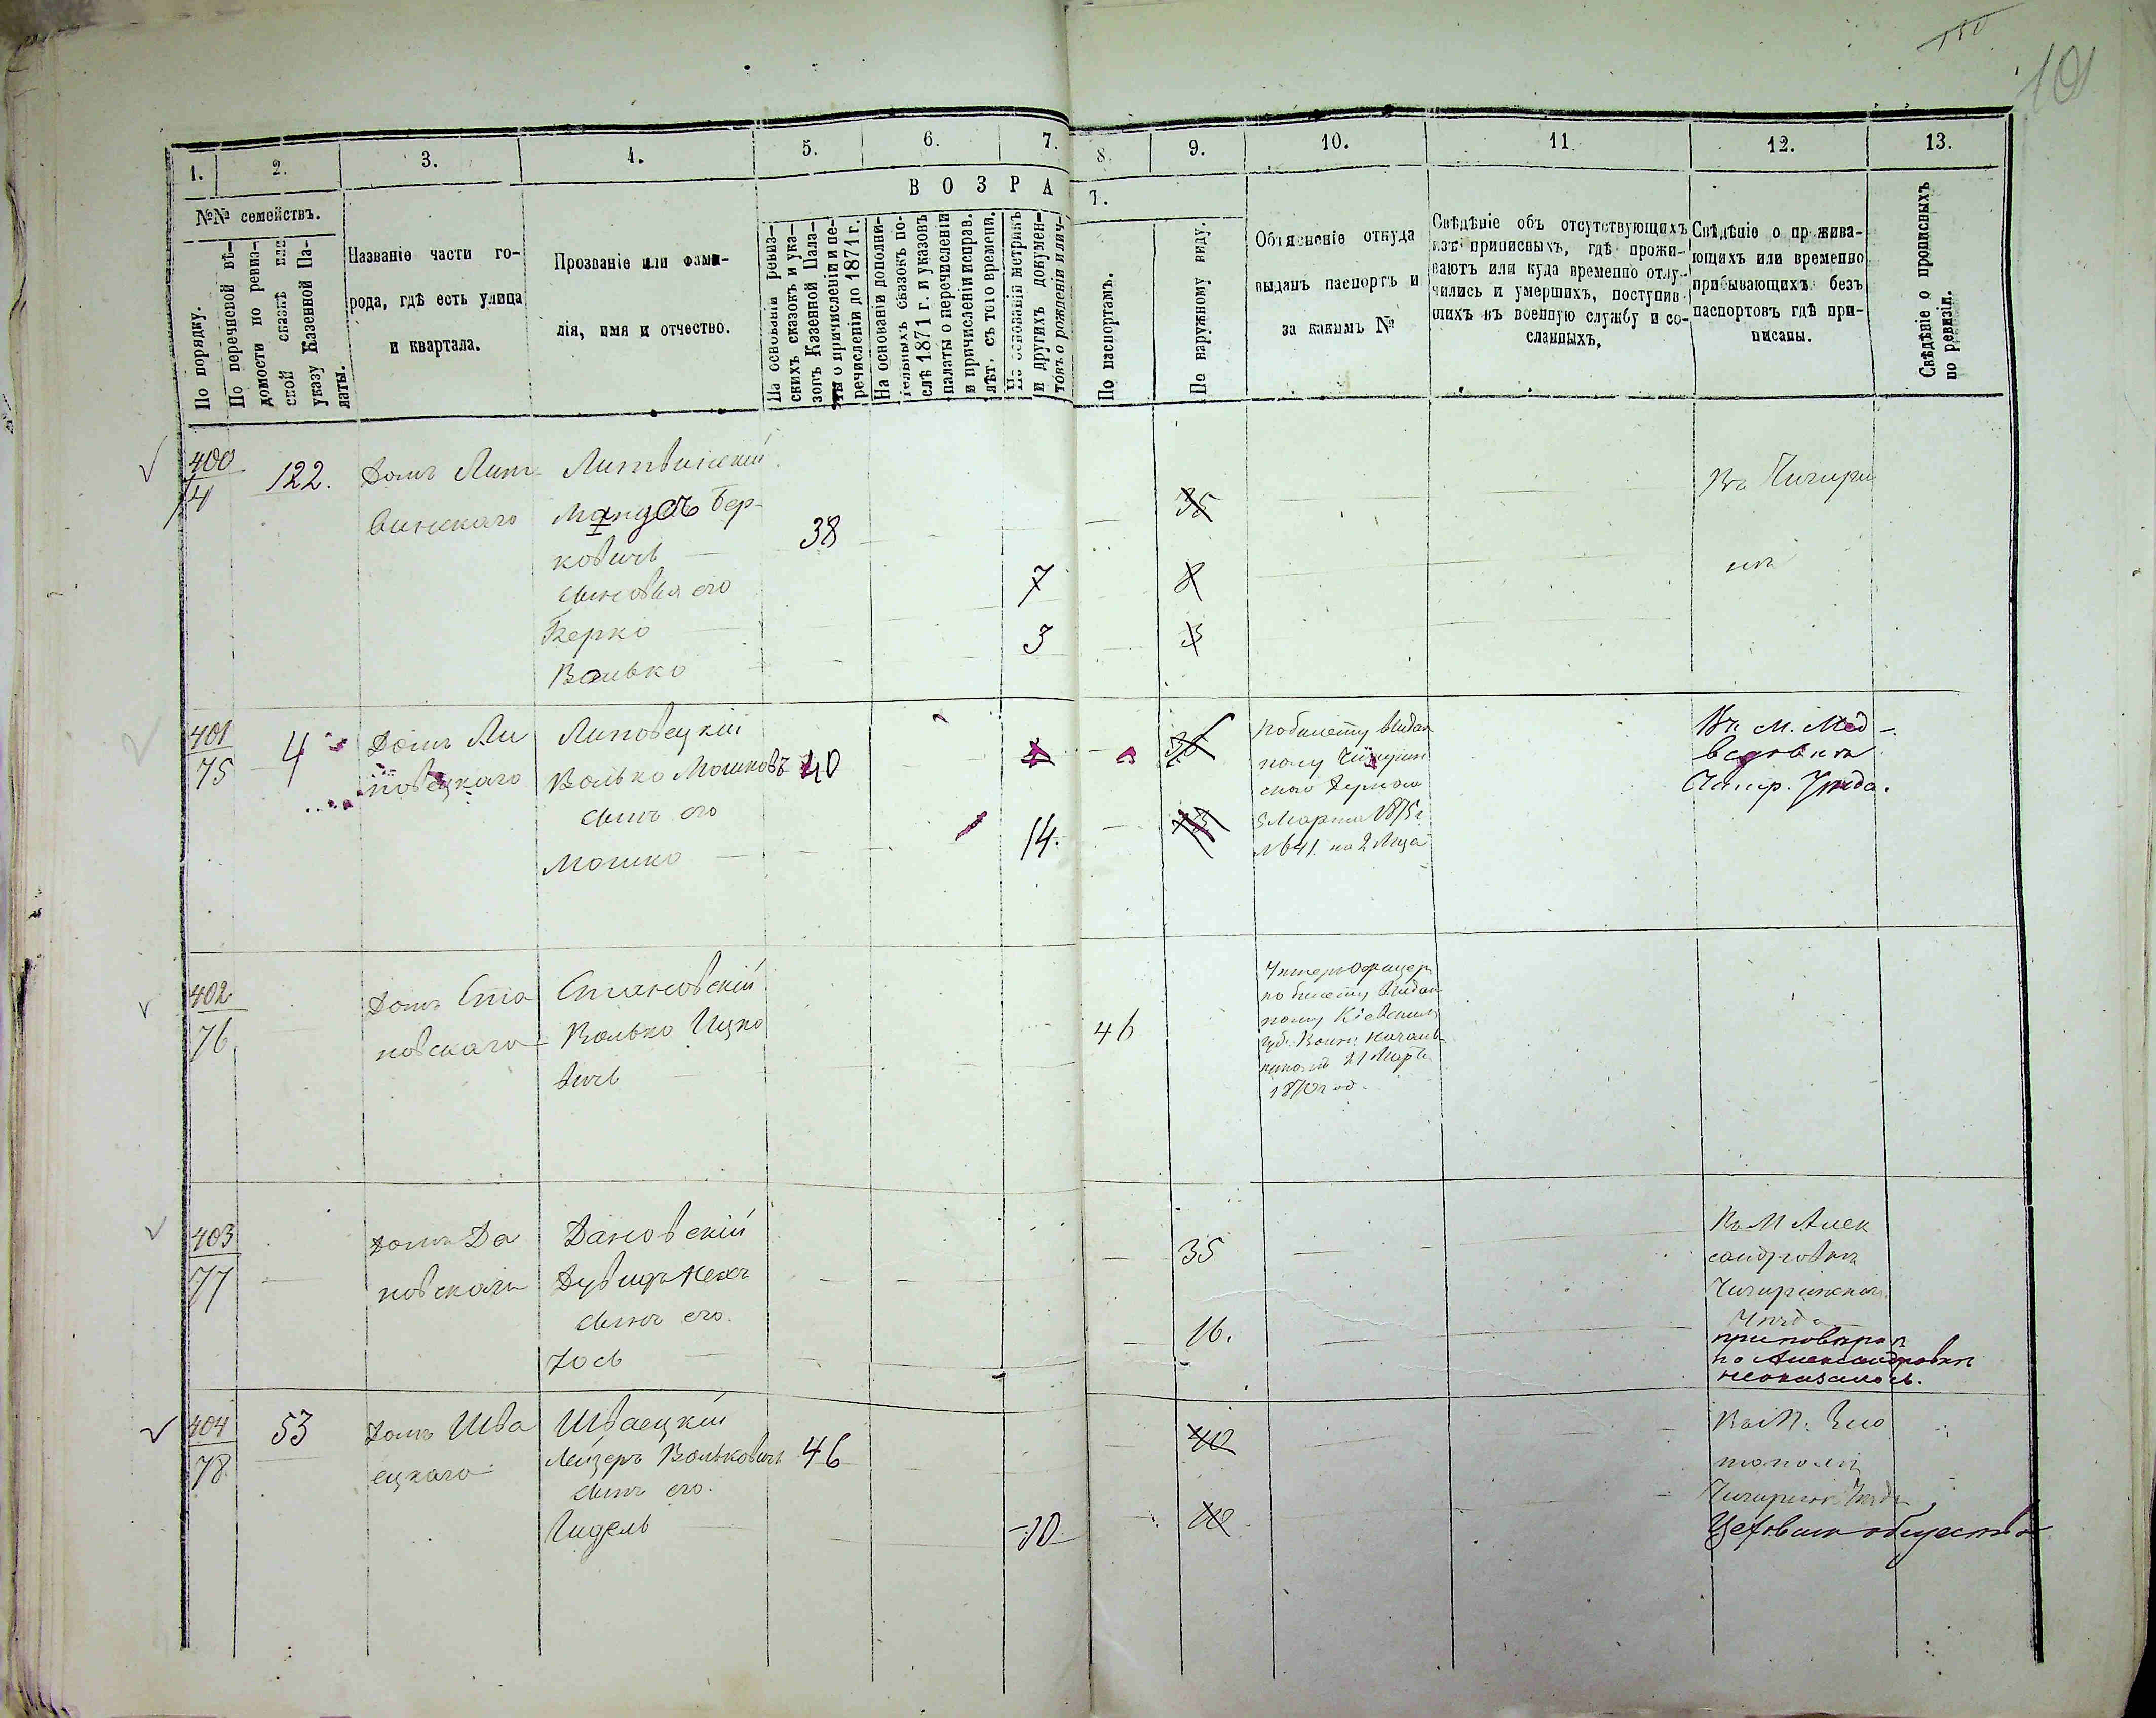 150
101
1. 2. 3. 4. 5. 6. 7. 8. 9. 10. 11. 12. 13.
№№ семействъ.
По порядку.
По перечневой вѣ-
домости по ревиз-
ской сказкѣ или
указу Казенной Па-
латы.
Названіе части го-
рода, гдѣ есть улица
и квартала.
Прозваніе или фами-
лія, имя и отчество.
ВОЗРА
Т.
На основаніи ревиз-
скихъ сказокъ и ука-
зовъ Казенной Пала-
ты о причисленіи и пе-
речисленіи до 1871 г.
На основаніи дополни-
тельныхъ сказокъ по-
слѣ 1871 г. и указовъ
палаты о перечисленіи
и причисленіи исправ.
лѣт. съ того времени.
По основаніи метрикъ
и другихъ докумен-
товъ о рожденіи и лич-
По паспортамъ.
По наружному виду.
Объясненіе откуда
выданъ паспортъ и
за какимъ №
Свѣдѣніе объ отсутствующихъ
изъ приписныхъ, гдѣ прожи-
ваютъ или куда временно отлу-
чились и умершихъ, поступив-
шихъ въ военную службу и со-
сланныхъ.
Свѣдѣніе о прожива-
ющихъ или временно
прибывающихъ безъ
паспортовъ гдѣ при-
писаны.
Свѣдѣніе о прописныхъ
по ревизіи.
400
74
122.
Домъ Лит-
винскаго
Литвинскій
Бер-
ковичъ
сыновья его
Берко
Волько
38
7
3
35
8
3
Въ Чигири
нѣ
401
75
4
Домъ Ли
повецкаго
Липовецкій
Волько Мошковъ
сынъ его
Мошко
40
14.
По билету выдан
ному
5 Марта 1875 г.
№ 641. на 2 Мца
Въ М. Мед-
ведовкѣ
Чигир. Уѣзда.
402
76
Домъ Ста
новскаго
Становскій
Волько Ицко
вичъ
46
Унтеръ Офицеръ
по билету выдан
ному Кіевскимъ
Губ. Воин. Началь
никомъ 21 Марта
1870 год.
403
77
Домъ Да
новскаго
Дановскій
сынъ его.
Іось
35
16.
Въ М Алек
сандровкѣ
Чигиринскаго
Уѣзда
при повѣркѣ
по Александровкѣ
не оказалось.
404
78
53
Домъ Шва
ецкаго
Шваецкій
Лейзеръ Вольковичъ
сынъ его.
46
10
40
10
Зло
тополѣ
Чигиринс. Уѣзда
общества